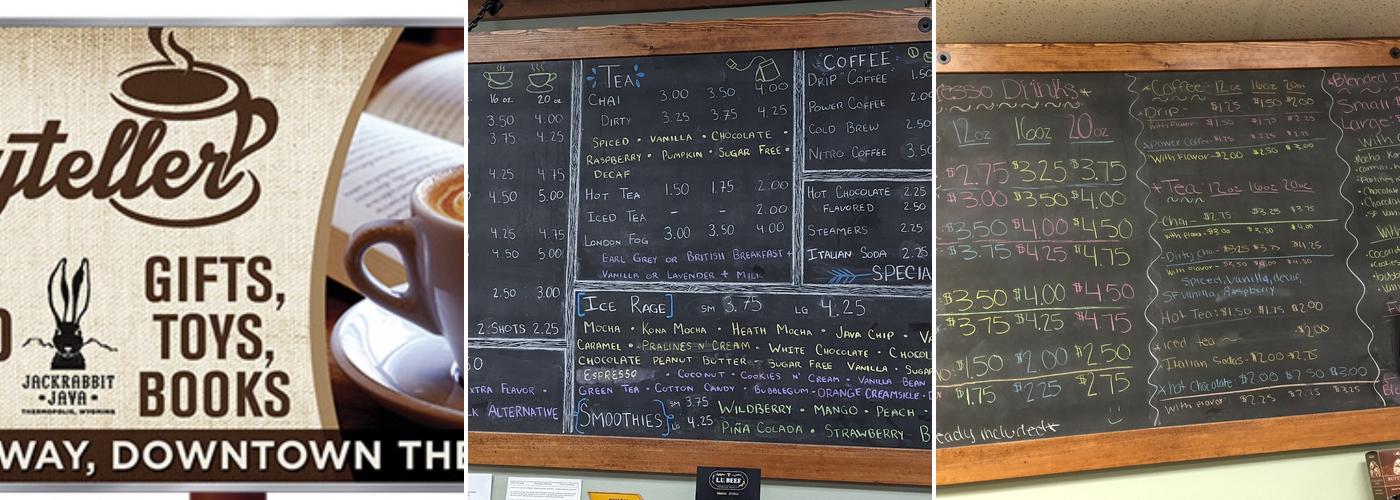 yteller
GIFTS,
TOYS,
BOOKS
JACKRABBIT
• JAVA •
THERMOPOLIS, WYOMING
WAY, DOWNTOWN THE
16 oz. 20 oz.
3.50 4.00
3.75 4.25
4.25 4.75
4.50 5.00
4.25 4.75
4.50 5.00
2.50 3.00
2 SHOTS 2.25
XTRA FLAVOR •
K ALTERNATIVE
TEA
CHAI 3.00 3.50 4.00
DIRTY 3.25 3.75 4.25
SPICED • VANILLA • CHOCOLATE •
RASPBERRY • PUMPKIN • SUGAR FREE •
DECAF
HOT TEA 1.50 1.75 2.00
ICED TEA – – 2.00
LONDON FOG 3.00 3.50 4.00
EARL GREY OR BRITISH BREAKFAST +
VANILLA OR LAVENDER + MILK
"COFFEE"
DRIP COFFEE 1.50
POWER COFFEE 2.00
COLD BREW 2.50
NITRO COFFEE 3.50
HOT CHOCOLATE 2.25
FLAVORED 2.50
STEAMERS 2.25
ITALIAN SODA 2.25
SPECIA
[ICE RAGE] SM 3.75 LG 4.25
MOCHA • KONA MOCHA • HEATH MOCHA • JAVA CHIP • VA
CARAMEL • PRALINES N' CREAM • WHITE CHOCOLATE • CHOCOL
CHOCOLATE PEANUT BUTTER • SUGAR FREE VANILLA • SUGAR
ESPRESSO • COCONUT • COOKIES N' CREAM • VANILLA BEAN
GREEN TEA • COTTON CANDY • BUBBLEGUM • ORANGE CREAMSICLE • D
[SMOOTHIES] SM 3.75 LG 4.25 WILDBERRY • MANGO • PEACH •
PIÑA COLADA • STRAWBERRY B
resso Drinks
12oz 16oz 20oz
$2.75 $3.25 $3.75
$3.00 $3.50 $4.00
$3.50 $4.00 $4.50
$3.75 $4.25 $4.75
$3.50 $4.00 $4.50
$3.75 $4.25 $4.75
$1.50 $2.00 $2.50
$1.75 $2.25 $2.75
eady included*
Coffee: 12oz 16oz 20oz
Drip $1.25 $1.50 $2.00
With flavor $1.50 $1.75 $2.25
Power Coffee
With Flavor $2.00 $2.50 $3.00
Tea 12oz 16oz 20oz
Chai $2.75 $3.25 $3.75
With flavor
Dirty chai
With flavor
Spiced, Vanilla, decaf,
SF vanilla, Raspberry
Hot Tea: $1.50 $1.75 $2.00
iced tea $2.00
Italian Sodas $2.00 $2.75
Hot Chocolate: $2.00 $2.50 $3.00
With flavor: $2.25 $2.75 $3.25
Blended
Small
Large
With